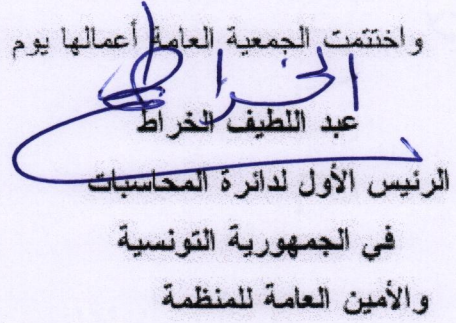 واختتمت الجمعية العامة أعمالها يوم
الخراط
عبد اللطيف الخراط
الرئيس الأول لدائرة المحاسبات
في الجمهورية التونسية
والأمين العامة للمنظمة